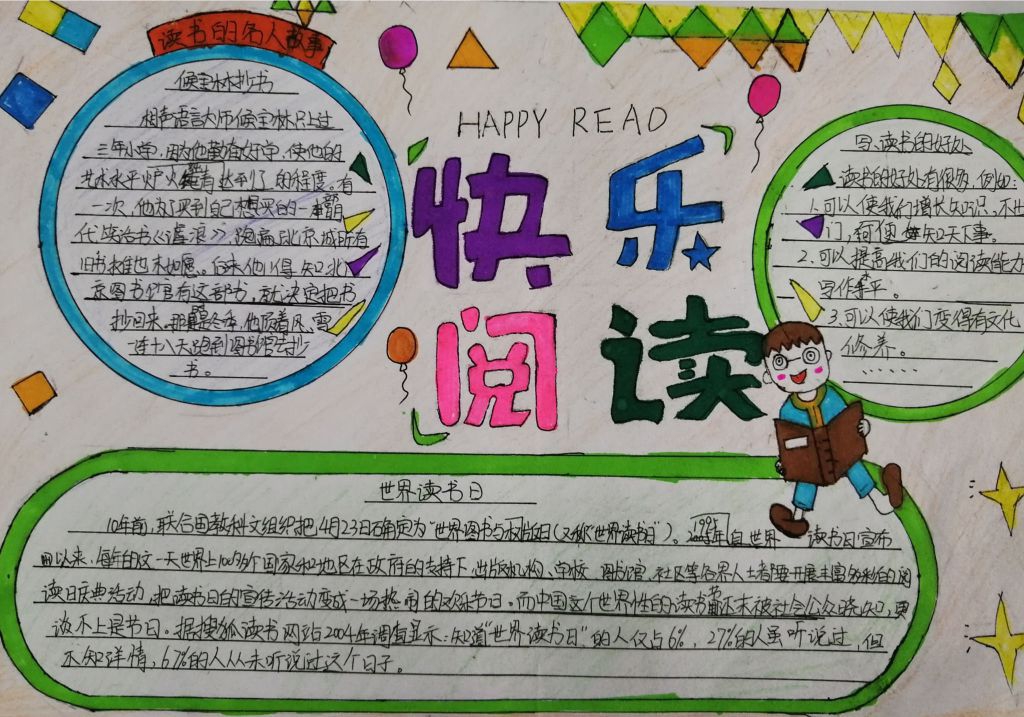 读书的名人故事
侯宝林抄书
相声语言大师侯宝林只上过
三年小学，因他勤奋好学，使他的
艺术水平炉火 有达到了 的程度。有
一次，他为了买到自己想买的一本明
代笑话书《谑浪》，跑遍了北京城所有
旧书摊也未如愿。后来他们得知北
京图书馆有这部书，就决定把书
抄回来。那是冬季，他顶着风、雪
连十八天跑到图书馆去抄
书。
HAPPY READ
快乐
阅读
写、读书的好处
读书的好处有很多，例如：
1.可以使我们增长知识，不出
门，可便 知天下事。
2.可以提高我们的阅读能力
写作水平。
3.可以使我们变得有文化
修养。
……
世界读书日
10年前，联合国教科文组织把4月23日确定为"世界图书与权版日（又称"世界读书日"）。1995年自世界 读书日宣布
以来，每年的这一天世界上100多个国家和地区在政府的支持下，出版机构、学校、图书馆、社区等各界人士都要开展丰富多彩的阅
读日庆典活动，把读书日的宣传活动变成一场热 闹的欢乐节日。而中国这个世界性的读书 还未被社会公众晓知，更
谈不上是节日。据搜狐读书网站2004年调查显示：知道"世界读书日"的人仅占6%，27%的人虽听说过，但
不知详情，67%的人从未听说过这个日子。